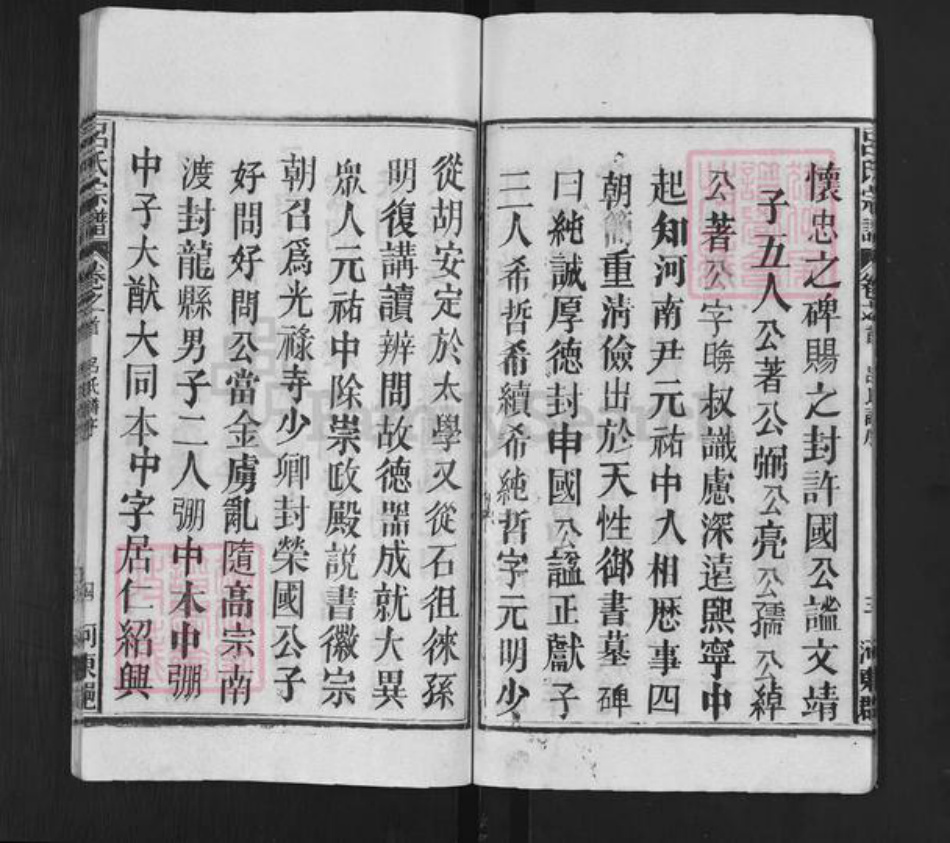 懷忠之碑賜之封許國公謐文靖
子五人公著公弼公亮公孺公綽
公著公字晦叔識慮深遠熙寧中
起知河南尹元祐中入相歷事四
朝簡重清儉出於天性御書墓碑
曰純誠厚德封申國公謚正獻子
三人希哲希績希純哲字元明少
從胡安定於太學又從石徂徠孫
明復講讀辨問故德器成就大異
眾人元祐中除崇政殿説書徽宗
朝召爲光祿寺少卿封榮國公子
好問好問公當金虜亂隨高宗南
渡封龍縣男子二人弸中本中弸
中子大猷大同本中字居仁紹興
呂氏宗譜 卷之首
FamilySearch